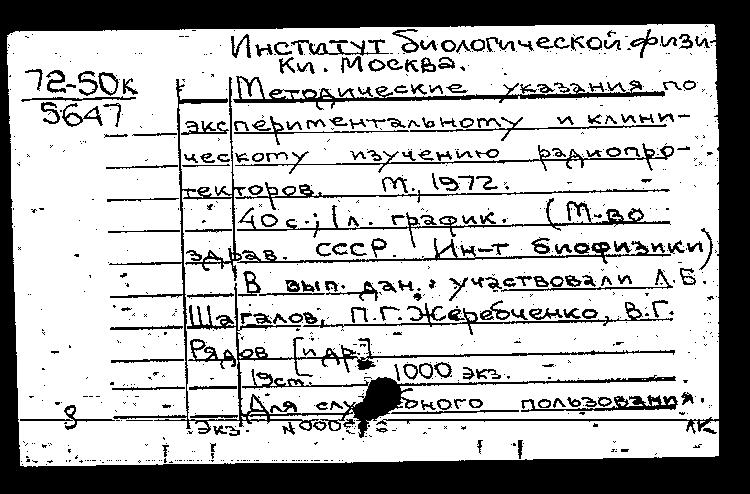 Институт биологической физи-
ки. Москва.
72-50к
5647
Методические указания по
экспериментальному и клини-
ческому изучению радиопро-
текторов. М., 1972.
40 с.; 1 л. график. (М-во
здрав. СССР. Ин-т биофизики)
В вып. дан. участвовали Л.Б.
Шагалов, П.Г. Жеребченко, В.Г.
Рядов [и др.]
19 ст. 1000 экз.
Для служебного пользования.
Экз. N000
лк